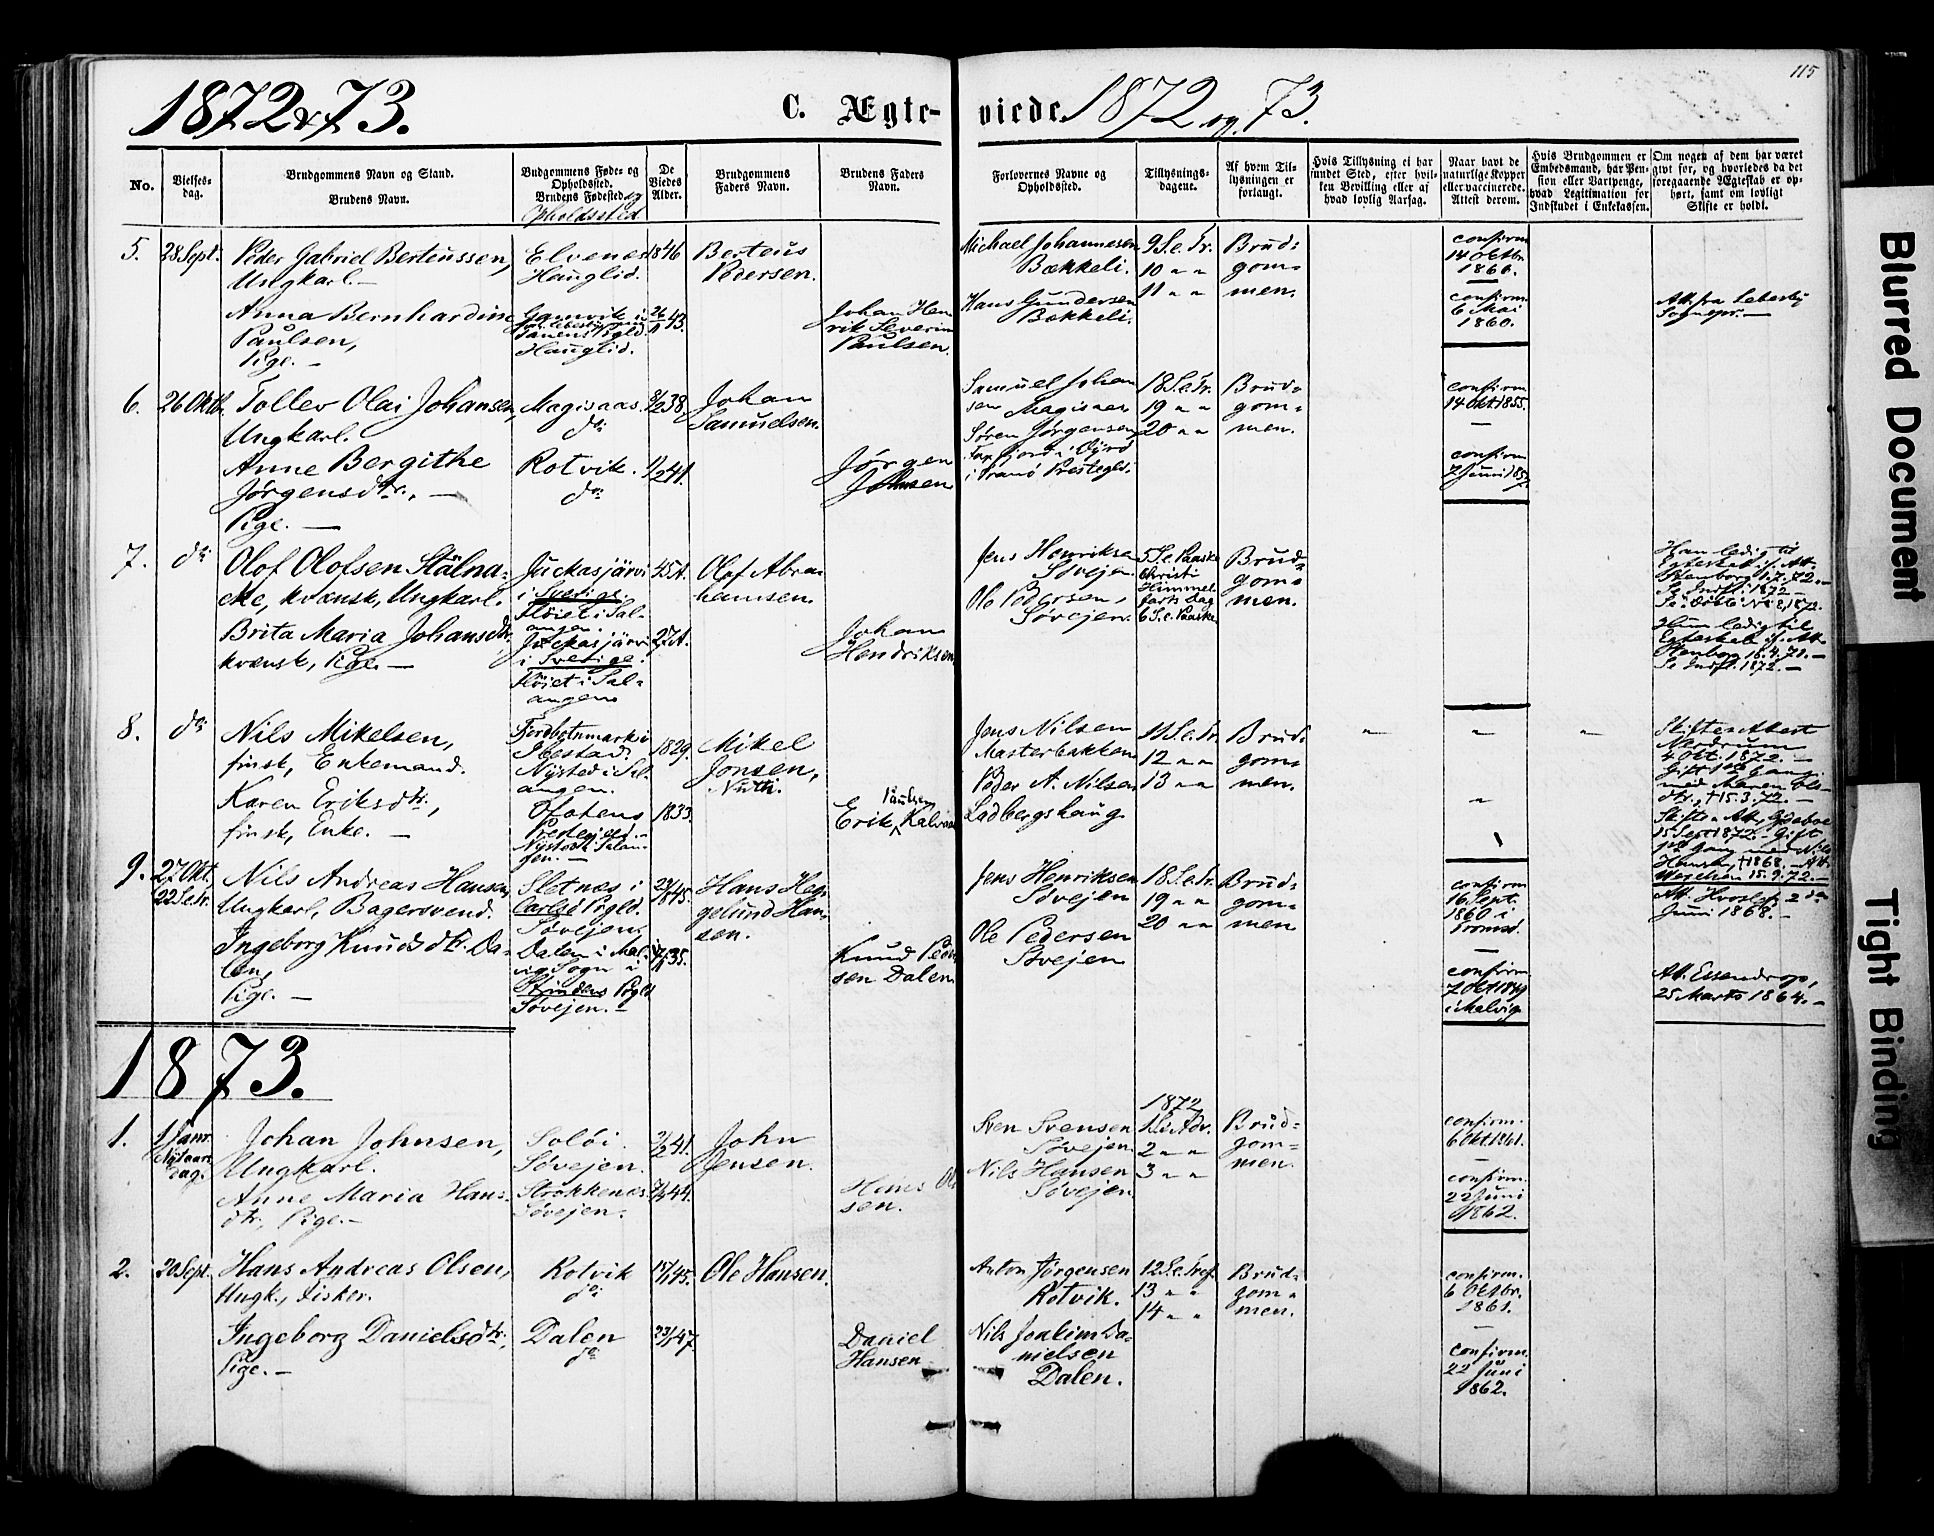 115
1872 & 73.
C. Ægte-
viede
1872 og 73.
No.
Vielses-
dag.
Brudgommens Navn og Stand.
Brudens Navn.
Budgommens Føde- og
Opholdssted.
Brudens Fødested og
Opholdssted
De
Viedes
Alder.
Brudgommens
Faders Navn.
Brudens Faders
Navn.
Forlovernes Navne og
Opholdssted.
Tillysnings-
dagene.
Af hvem Til-
lysningen er
forlangt.
Hvis Tillysning ei har
fundet Sted, efter hvil-
ken Bevilling eller af
hvad lovlig Aarsag.
Naar havt de
naturlige Kopper
eller vaccinerede.
Attest derom.
Hvis Brudgommen er
Embedsmand, har Pen-
sion eller Vartpenge,
hvad Legitimation for
Indskudet i Enkekassen.
Om nogen af dem har været
givt før, og hvorledes da det
foregaaende Ægteskab er op-
hørt, samt om lovligt
Skifte er holdt.
5.
28 Sept.
Peder Gabriel Berteussen,
Ungkarl. —
Anna Bernhardine
Paulsen,
Pige. —
Elvenes
Hauglid.
Gamvik i
Hauglid.
1846
26/11 43.
Berteus
Pedersen.
Johan Hen
rik Severin
Paulsen.
Michael Johannesen
Bækkeli.
Hans Gundersen
Bækkeli.
9 S. e. Tr.
10 " "
11 " "
Brud=
gom=
men.
confirm.
14 Oktbr.
1860.
confirm.
6 Mai
1860.
Att. fra Lebesby
Sognepr. —
6.
26 Oktb.
Tollev Olai Johansen,
Ungkarl.
Anne Bergithe
Jørgensdtr., —
Pige. —
Magisaas.
do
Rotvik.
do
38.
41.
Johan
Samuelsen.
Jørgen
Johnsen
Samuel Johan
sen Magisaas
Søren Jørgensen
i Tranø Prestegjd.
18 S. e. Tr.
19 " "
20 " "
Brud=
gom=
men.
confirm.
14 Okt 1855.
—
confirm.
7 Juni 1857.
7.
do
Olof Olofsen Stälna=
cke, kvænsk, Ungkarl.
Brita Maria Johansdtr.
kvænsk, Pige. —
Juckasjärvi
i Sverige.
Fløiet i Sal-
angen.
Juckasjärvi
i Sverige.
Fløiet i Sal=
angen
45 A.
27 A.
Olof Abra-
hamsen.
Johan
Hendriksen
Jens Henriksen
Søvejen.
Ole Pedersen,
Søvejen.
5 S. e. Paaske
Christi
Himmel-
farts dag
6 S. e. Paaske
Brud=
gom=
men.
Han ledig til
Egteskab if. Att.
Stenborg 1.7.72. —
Se Indfl. 1872 —
Hun ledig til
Egteskab if. Att.
Stenborg 16.4.70. —
Se Indfl. 1872. —
8.
do
Nils Mikelsen,
finsk, Enkemand.
Karen Eriksdtr.,
finsk, Enke. —
Fjordbotnmark i
Ibestad.
Nysted i Sal-
angen.
Ofotens
Prestegjeld. —
Nysted i Salan-
gen. —
1829.
1833.
Mikel
Jonsen,
Nutti.
Paulsen
Erik Kalvaas
Jens Nilsen
Masterbakken
Peder A. Nilsen
Ladbergshaug
11 S. e. Tr.
12 " "
13 " "
Brud=
gom=
men.
Skifte Attest
Nerdrum
4 Okt. 1872. —
Gift 1ste Gang
med Maren Ols-
dtr., †15.3.72. —
15 Sept 1872. — Gift
1ste Gang med Nils
†1868. — Att.
15.9.72. —
9.
27 Okt.
22 S. e Tr.
Nils Andreas Hansen,
Ungkarl, Bagersvend.
Ingeborg Knudsdtr. Da-
len,
Pige. —
Sletnæs i
Carlsø Prgld.
Søvejen.
Dalen i Mal-
vig Sogn i
Strindens Prgld
Søvejen. —
45.
35.
Hans Heg
gelund Han-
sen.
Knud Peder
sen Dalen.
Jens Henriksen
Søvejen
Ole Pedersen
Søvejen
18 S. e. Tr.
19 " "
20 " "
Brud=
gom=
men
confirm
16 Sept.
1860 i
Tromsø.
—
confirm.
7 Okt 1849
i Malvig
Att. Hvoslef 2den
Juni 1868. —
Att. Essendrop,
25 Marts 1864. —
1873.
1.
1 Janr.
Nytaars
dag.
Johan Johnsen,
Ungkarl.
Anne Maria Hans-
dtr., Pige. —
Soløi.
Søvejen.
Strokkenæs.
Søvejen.
41.
44.
John
Jensen.
Hans Ol
sen.
Sven Svensen
Søvejen
Nils Hansen
Søvejen
1872
1 S. i Adv.
2 " "
3 " "
Brud=
gom=
men.
confirm.
6 Okt. 1861.
—
confirm.
22 Juni
1862.
2.
20 Sept.
Hans Andreas Olsen,
Ungk., Fisker.
Ingeborg Danielsdtr.,
Pige. —
Rotvik
do
Dalen
do
45.
47
Ole Hansen.
Daniel
Hansen
Anton Jørgensen
Rotvik.
Nils Joakim Da-
nielsen
Dalen.
12 S. e. Tref.
13 " "
14 " "
Brud=
gom=
men.
confirm.
6 Oktbr.
1861.
—
confirm.
22 Juni
1862.
Blurred Document
Tight Binding